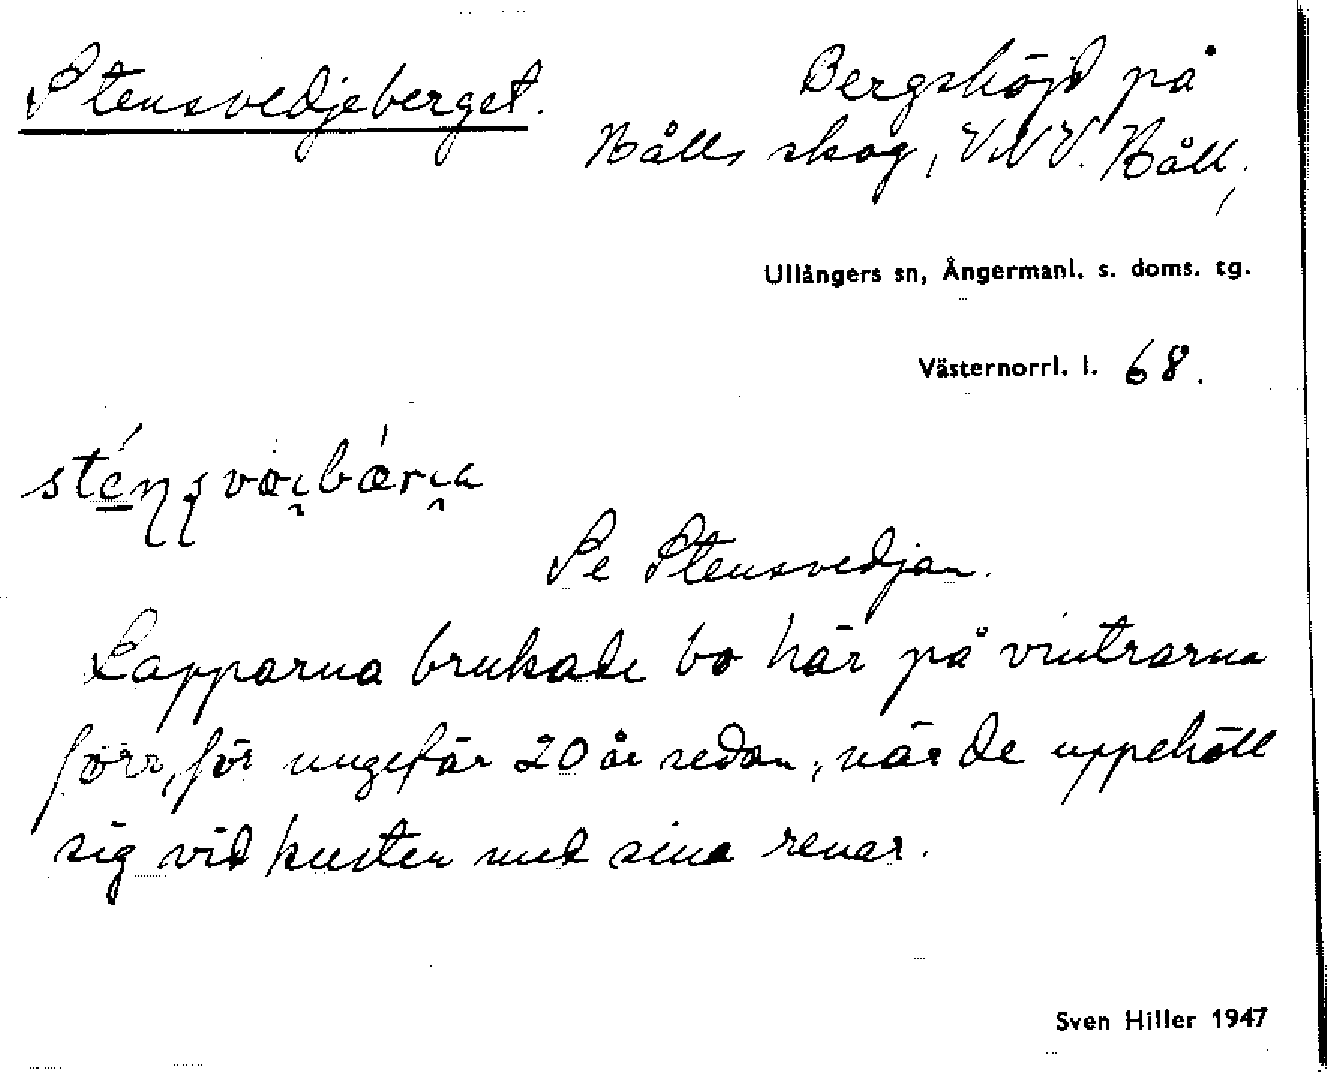 Stensvedjeberget. Bergshöjd på
Nålls skog, VNV. Nåll,
Ullångers sn, Ångermanl. s. doms. tg.
Västernorrl. l. 68.
Se Stensvedjan.
Lapparna brukade bo här på vintrarna
förr, för ungefär 20 år sedan, när de uppehöll
sig vid kusten med sina renar.
Sven Hiller 1947